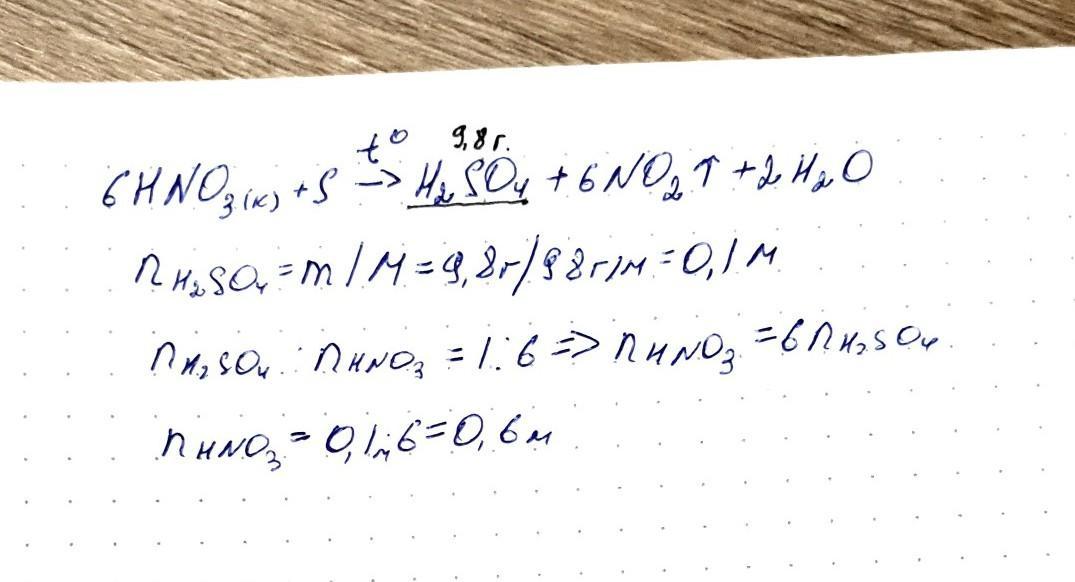 t° 9,8 г.
6HNO₃(к) + S → H₂SO₄ + 6NO₂↑ + 2H₂O
nH₂SO₄ = m/M = 9,8г/98г/м = 0,1м
nH₂SO₄ : nHNO₃ = 1:6 => nHNO₃ = 6nH₂SO₄
nHNO₃ = 0,1м·6 = 0,6м